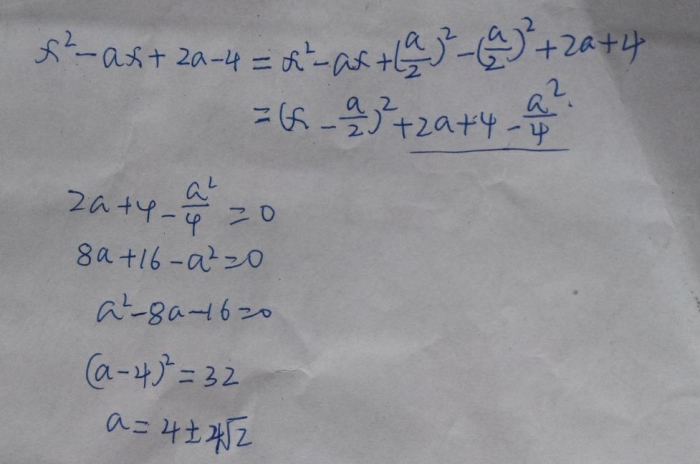 x²-ax+2a-4=x²-ax+(a/2)²-(a/2)²+2a+4
=(x-a/2)²+2a+4-a²/4.
2a+4-a²/4=0
8a+16-a²=0
a²-8a-16=0
(a-4)²=32
a=4±4√2